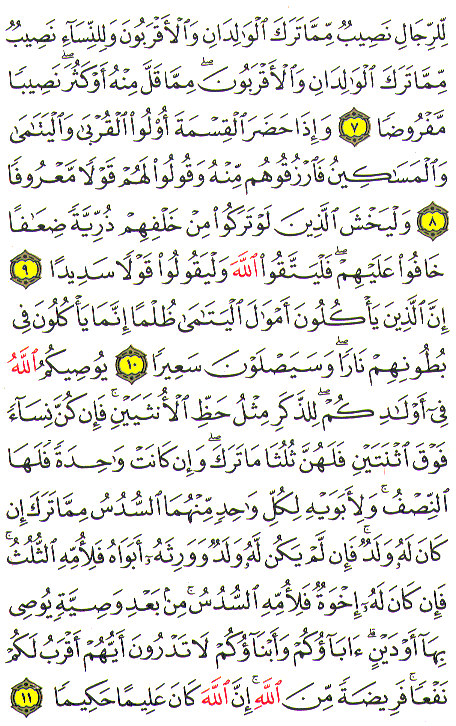 لِّلرِّجَالِ نَصِيبٌ مِّمَّا تَرَكَ ٱلْوَٰلِدَانِ وَٱلْأَقْرَبُونَ وَلِلنِّسَآءِ نَصِيبٌ
مِّمَّا تَرَكَ ٱلْوَٰلِدَانِ وَٱلْأَقْرَبُونَ مِمَّا قَلَّ مِنْهُ أَوْ كَثُرَ ۚ نَصِيبًا
مَّفْرُوضًا ٧ وَإِذَا حَضَرَ ٱلْقِسْمَةَ أُو۟لُوا۟ ٱلْقُرْبَىٰ وَٱلْيَتَـٰمَىٰ
وَٱلْمَسَـٰكِينُ فَٱرْزُقُوهُم مِّنْهُ وَقُولُوا۟ لَهُمْ قَوْلًا مَّعْرُوفًا
٨ وَلْيَخْشَ ٱلَّذِينَ لَوْ تَرَكُوا۟ مِنْ خَلْفِهِمْ ذُرِّيَّةً ضِعَـٰفًا
خَافُوا۟ عَلَيْهِمْ ۖ فَلْيَتَّقُوا۟ ٱللَّهَ وَلْيَقُولُوا۟ قَوْلًا سَدِيدًا ٩
إِنَّ ٱلَّذِينَ يَأْكُلُونَ أَمْوَٰلَ ٱلْيَتَـٰمَىٰ ظُلْمًا إِنَّمَا يَأْكُلُونَ فِى
بُطُونِهِمْ نَارًا ۖ وَسَيَصْلَوْنَ سَعِيرًا ١٠ يُوصِيكُمُ ٱللَّهُ
فِىٓ أَوْلَـٰدِكُمْ ۖ لِلذَّكَرِ مِثْلُ حَظِّ ٱلْأُنثَيَيْنِ ۚ فَإِن كُنَّ نِسَآءً
فَوْقَ ٱثْنَتَيْنِ فَلَهُنَّ ثُلُثَا مَا تَرَكَ ۖ وَإِن كَانَتْ وَٰحِدَةً فَلَهَا
ٱلنِّصْفُ ۚ وَلِأَبَوَيْهِ لِكُلِّ وَٰحِدٍ مِّنْهُمَا ٱلسُّدُسُ مِمَّا تَرَكَ إِن
كَانَ لَهُۥ وَلَدٌ ۚ فَإِن لَّمْ يَكُن لَّهُۥ وَلَدٌ وَوَرِثَهُۥٓ أَبَوَاهُ فَلِأُمِّهِ ٱلثُّلُثُ ۚ
فَإِن كَانَ لَهُۥٓ إِخْوَةٌ فَلِأُمِّهِ ٱلسُّدُسُ ۚ مِنۢ بَعْدِ وَصِيَّةٍ يُوصِى
بِهَآ أَوْ دَيْنٍ ۗ ءَابَآؤُكُمْ وَأَبْنَآؤُكُمْ لَا تَدْرُونَ أَيُّهُمْ أَقْرَبُ لَكُمْ
نَفْعًا ۚ فَرِيضَةً مِّنَ ٱللَّهِ ۗ إِنَّ ٱللَّهَ كَانَ عَلِيمًا حَكِيمًا ١١